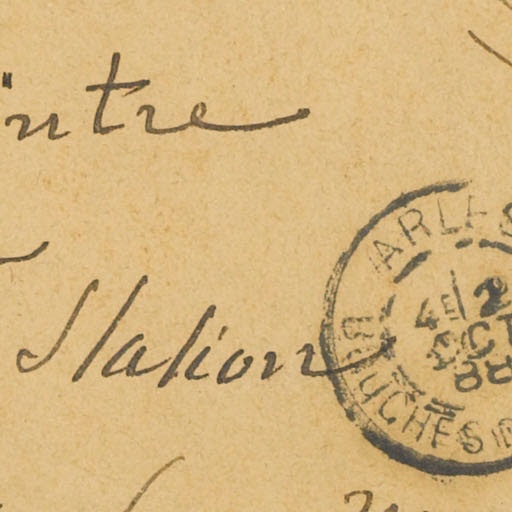 intre
Station
ARLES
4E 2
OCT
88
BOUCHES D